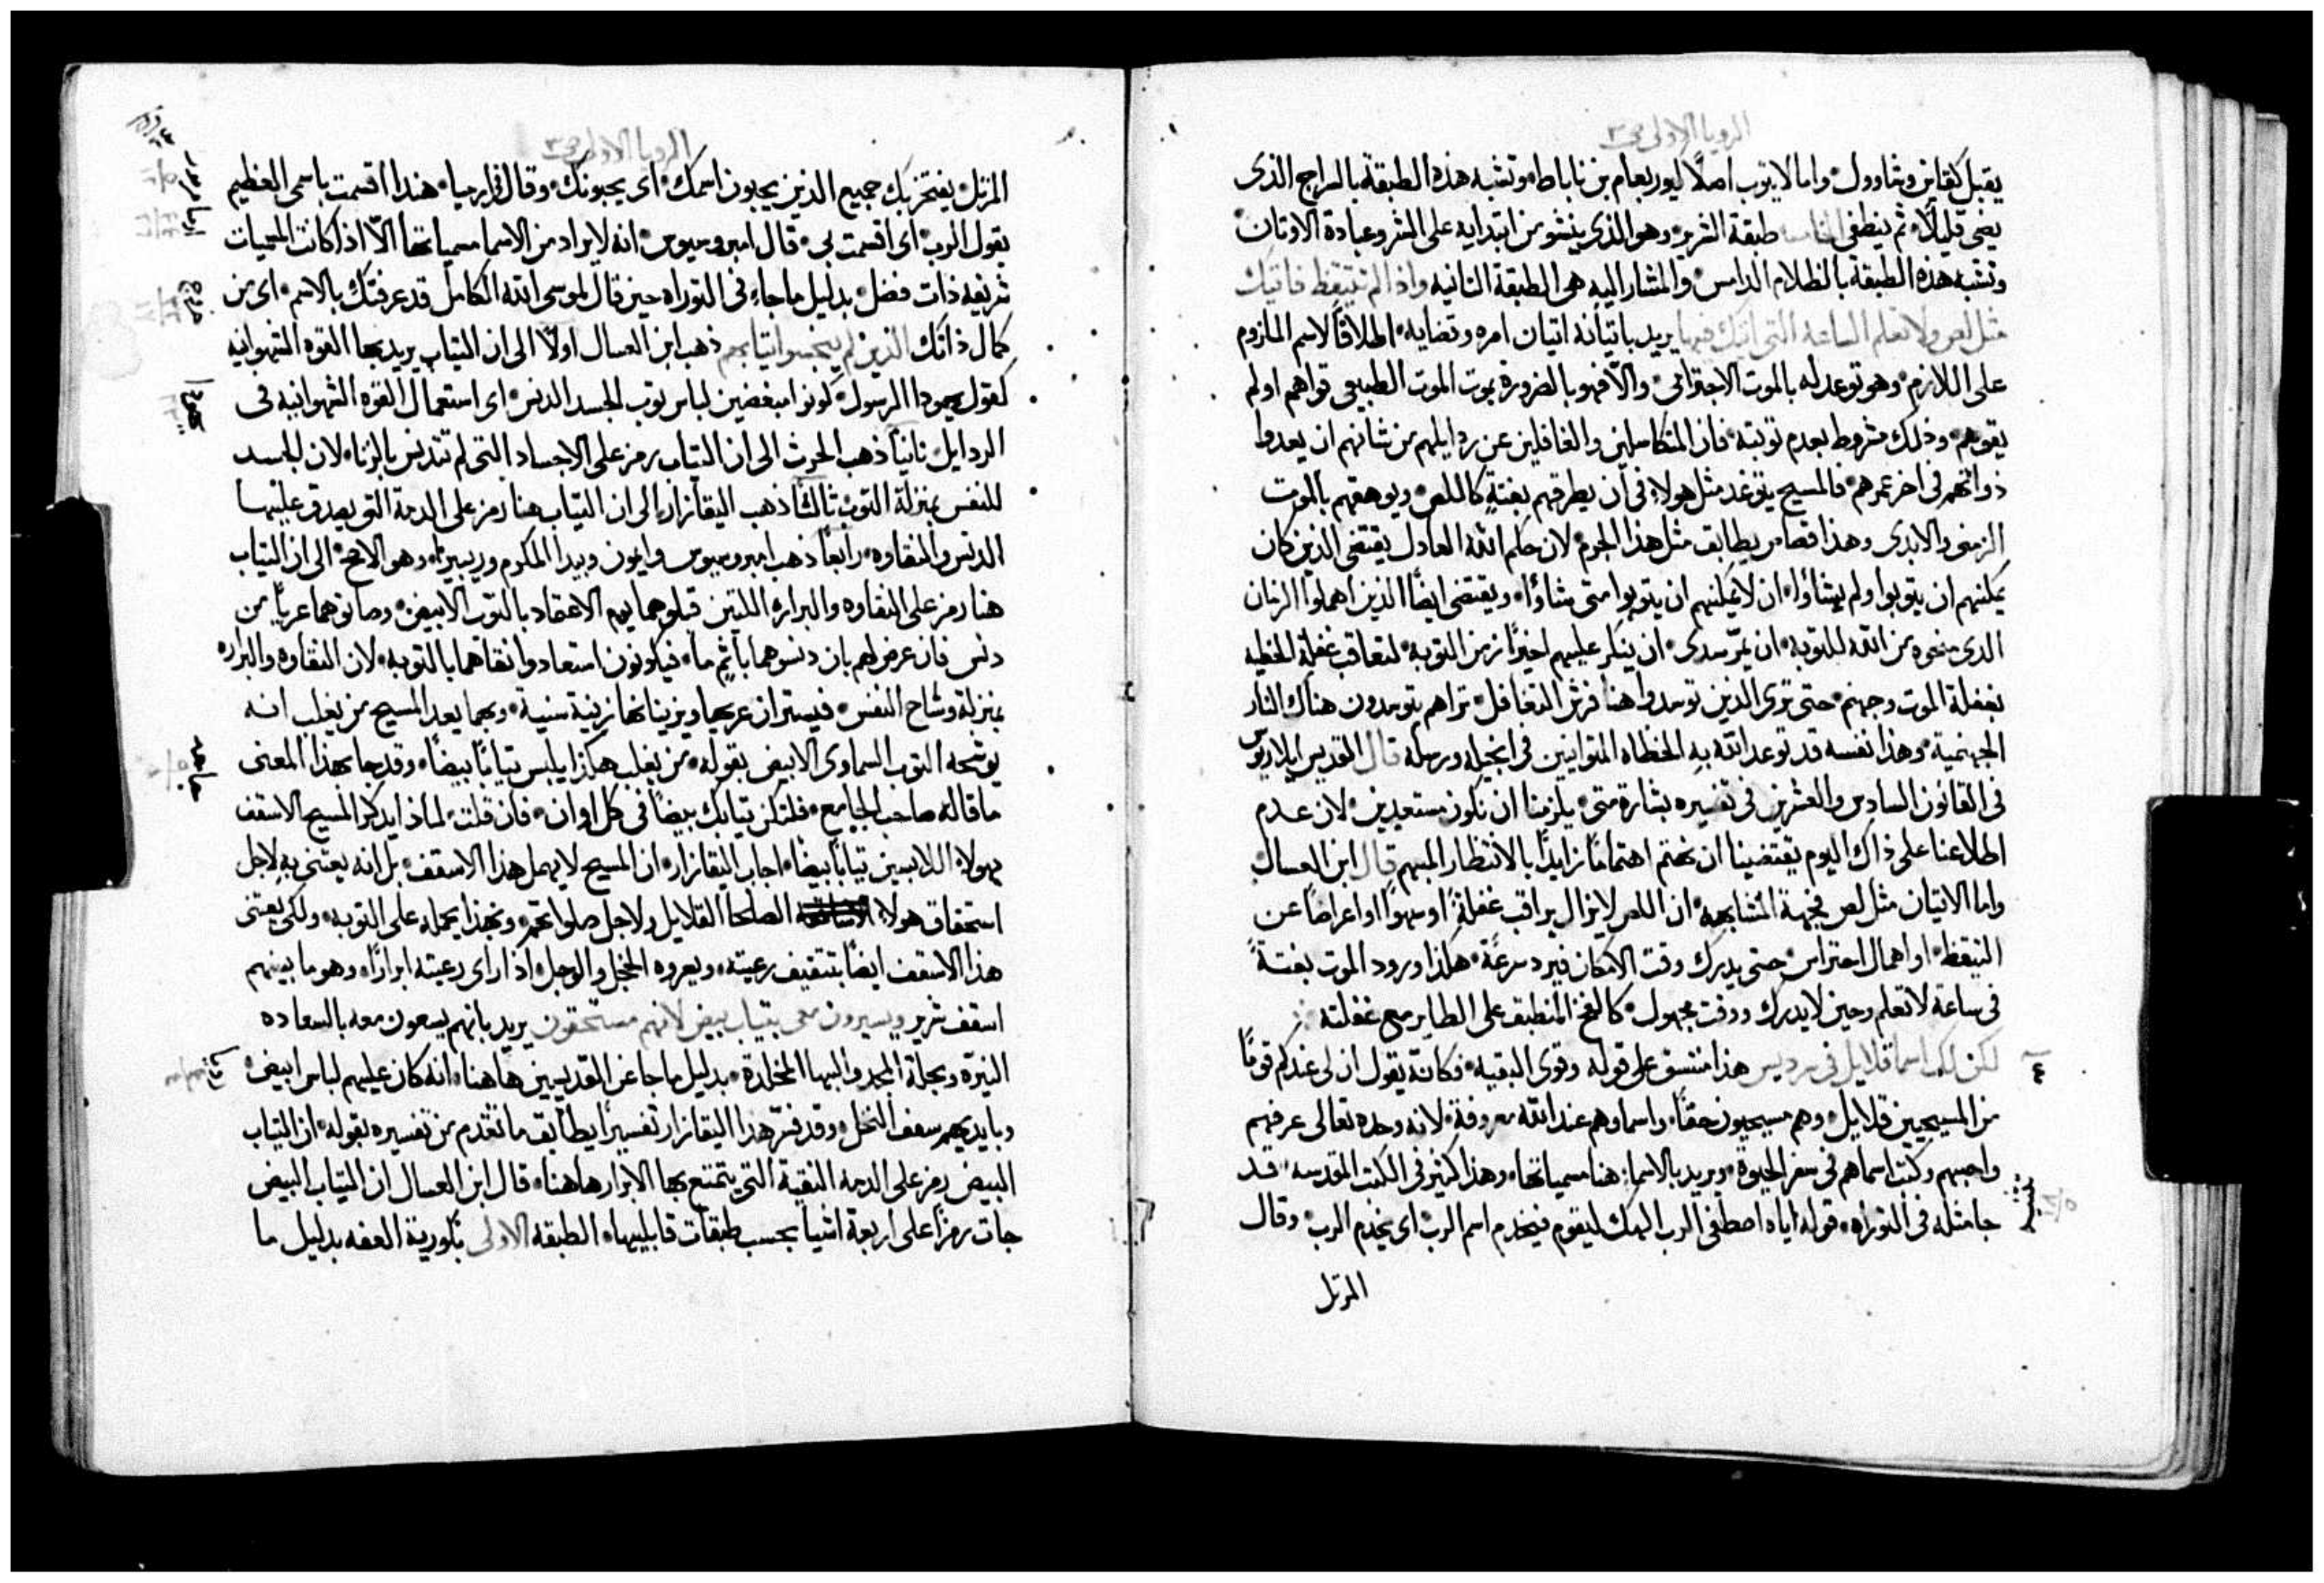 الرويا الاولى ص٣
يقبل كقاين وشاوول٠ واما لا يتوب اصلًا ليوربعام بن ناباط٠ وتشبه هذه الطبقة بالسراج الذى
يضى قليلًا٠ ثم ينطفى الخامسه طبقة الشرير٠ وهو الذى ينشو من ابتدايه على الشر وعبادة الاوثان٠
وتشبه هذه الطبقة بالظلام الدامس٠ والمشار اليه هى الطبقة الثانيه واذا لم تتيقظ فاتيك
مثل لص ولا تعلم الساعة التى اتيك فيها يريد باتيانه اتيان امره وقضايه٠ اطلاقًا لاسم الملزوم
على اللازم٠ وهو توعد له بالموت الاحترامى٠ والّا فهو بالضرورة يموت الموت الطبيعى قواهم او لم
يقوهم٠ وذلك مشروط بعدم توبته٠ فان المتكاسلين والغافلين عن ردايلهم من شانهم ان يعدوا
ذواتهم فى اخر عمرهم٠ فالمسيح يتوعد مثل هولاءِ فى ان يطرقهم بغتةٍ كاللص٠ ويوهقهم بالموت
الزمنى والابدى وهذا قصاص يطابق مثل هذا الجرم٠ لان حكم الله العادل يقتضى الذين كان
يمكنهم ان يتوبوا ولم يشاؤا٠ ان لا يمكنهم ان يتوبوا متى شاؤا٠ ويقتضى ايضًا الذين اهملوا الزمان
الذى منحوه من الله للتوبه٠ ان يمرّ سدى٠ ان ينكر عليهم اخيرًا زمن التوبة٠ لتعاقب غفلة الخطيه
بغفلة الموت وجهنم٠ حتى ترى الذين توسدوا هنا فرش التغافل٠ تراهم يتوسدون هناك النار
الجهنمية٠ وهذا نفسه قد توعد الله به الخطاه المتوانين فى انجيله ورسله قال القديس ايلاريوس
فى القانون السادس والعشرين فى تفسيره بشارة متى٠ يلزمنا ان نكون مستعدين٠ لان عدم
اطلاعنا على ذاك اليوم يقتضينا ان نهتم اهتمامًا زايدًا بالانتظار المبهم قال ابن العسال
واما الاتيان مثل لص فجهة المشابهه٠ ان اللص لا يزال يراقب غفلةً او سهوًا او اعراضًا عن
التيقظ٠ او اهمال احتراس٠ حتى يدرك وقت الامكان فيرد سرعةً٠ هكذا ورود الموت بغتةً
فى ساعة لا تعلم وحين لا يدرك ووقت مجهول٠ كالفخ المنطبق على الطاير مع غفلته
٤ لكن لك اسما قلايل فى سرديس هذا متسق على قوله وقوى البقيه٠ فكانه يقول ان لى عندكم قومًا
من المسيحيين قلايل٠ وهم مسيحيون حقًا٠ واسماوهم عند الله معروفة٠ لانه وحده تعالى عرفهم
واحبهم وكتب اسماهم فى سفر الحيوة٠ ويريد بالاسما٠ هنا مسمياتها٠ وهذا كثير فى الكتب المقدسه٠ قد
جا مثله فى التوراه٠ قوله اياه اصطفى الرب الهك ليقوم فيخدم اسم الرب٠ اى يخدم الرب٠ وقال
تثنيه ١٨/٥
المرتل
الرويا الاولى ص٣
المرتل٠ يفتخر بك جميع الذين يحبون اسمك٠ اى يحبونك٠ وقال فى ارميا٠ هنذا اقسمت باسمى العظيم
يقول الرب٠ اى اقسمت بى٠ قال امبروسيوس٠ انه لا يراد من الاسما مسمياتها الّا اذا كانت المسميات
شريفه ذات فضل٠ بدليل ما جاءِ فى التوراه حين قال لموسى الله الكامل قد عرفتك بالاسم٠ اى من
كمال ذاتك الذين لم ينجسوا ثيابهم ذهب ابن العسال اولًا الى ان الثياب يريد بها القوه الشهوانيه
كقول يهودا الرسول٠ كونوا مبغضين لباس ثوب الجسد الدنس٠ اى استعمال القوه الشهوانيه فى
الردايل٠ ثانيًا ذهب الحرث الى ان الثياب رمز على الاجساد التى لم تتدنس بالزنا٠ لان الجسد
للنفس بمنزلة الثوب٠ ثالثًا ذهب اليقازار الى ان الثياب هنا رمز على الدمة التى يصدق عليها
الدنس والنقاوه٠ رابعًا ذهب امبروسيوس وايمون وبيدا المكرم وريبيرا٠ وهو الاصح٠ الى ان الثياب
هنا رمز على النقاوه والبراره اللتين قبلوهما يوم الاعتماد بالثوب الابيض٠ وصانوهما عريًا من
دنس٠ فان عرض لهم بان دنسوهما باثم ما٠ فيكونون استعادوا نقاهما بالتوبه٠ لان النقاوه والبراره
بمنزلة وشاح النفس٠ فيستران عريها ويزينانها زينة سنية٠ وبهما يعد المسيح من يغلب انه
يوشحه الثوب السماوى الابيض بقوله٠ من يغلب هكذا يلبس ثيابًا بيضًا٠ وقد جا بهذا المعنى
ما قاله صاحب الجامع٠ فلتكن ثيابك بيضًا فى كل اوان٠ فان قلت٠ لماذا يدكر المسيح الاسقف
بهولاءِ اللابسين ثيابًا بيضًا٠ اجاب اليقازار٠ ان المسيح لا يهمل هذا الاسقف٠ بل انه يعتنى به لاجل
استحقاق هولاءِ الصلحا القلايل ولاجل صلواتهم٠ وبهذا يحمله على التوبه٠ ولكى يعتنى
هذا الاسقف ايضًا بتثقيف رعيته٠ ويعروه الخجل والوجل٠ اذا راى رعيته ابرارًا٠ وهو ما بينهم
اسقف شرير ويسيرون معى بثياب بيض لانهم مستحقون يريد بانهم يسعون معه بالسعاده
النيرة وبحلة المجد والبها المخلدة٠ بدليل ما جا عن القديسين هاهنا٠ انه كان عليهم لباس ابيض٠
وبايديهم سعف النخل٠ وقد فسّر هذا اليقازار تفسيرًا يطابق ما تقدم من تفسيره بقوله٠ ان الثياب
البيض رمز على الدمه النقية التى يتمتع بها الابرار هاهنا٠ قال ابن العسال ان الثياب البيض
جات رمزًا على اربعة اشيا بحسب طبقات قابليها٠ الطبقه الاولى بلورية العفه بدليل ما